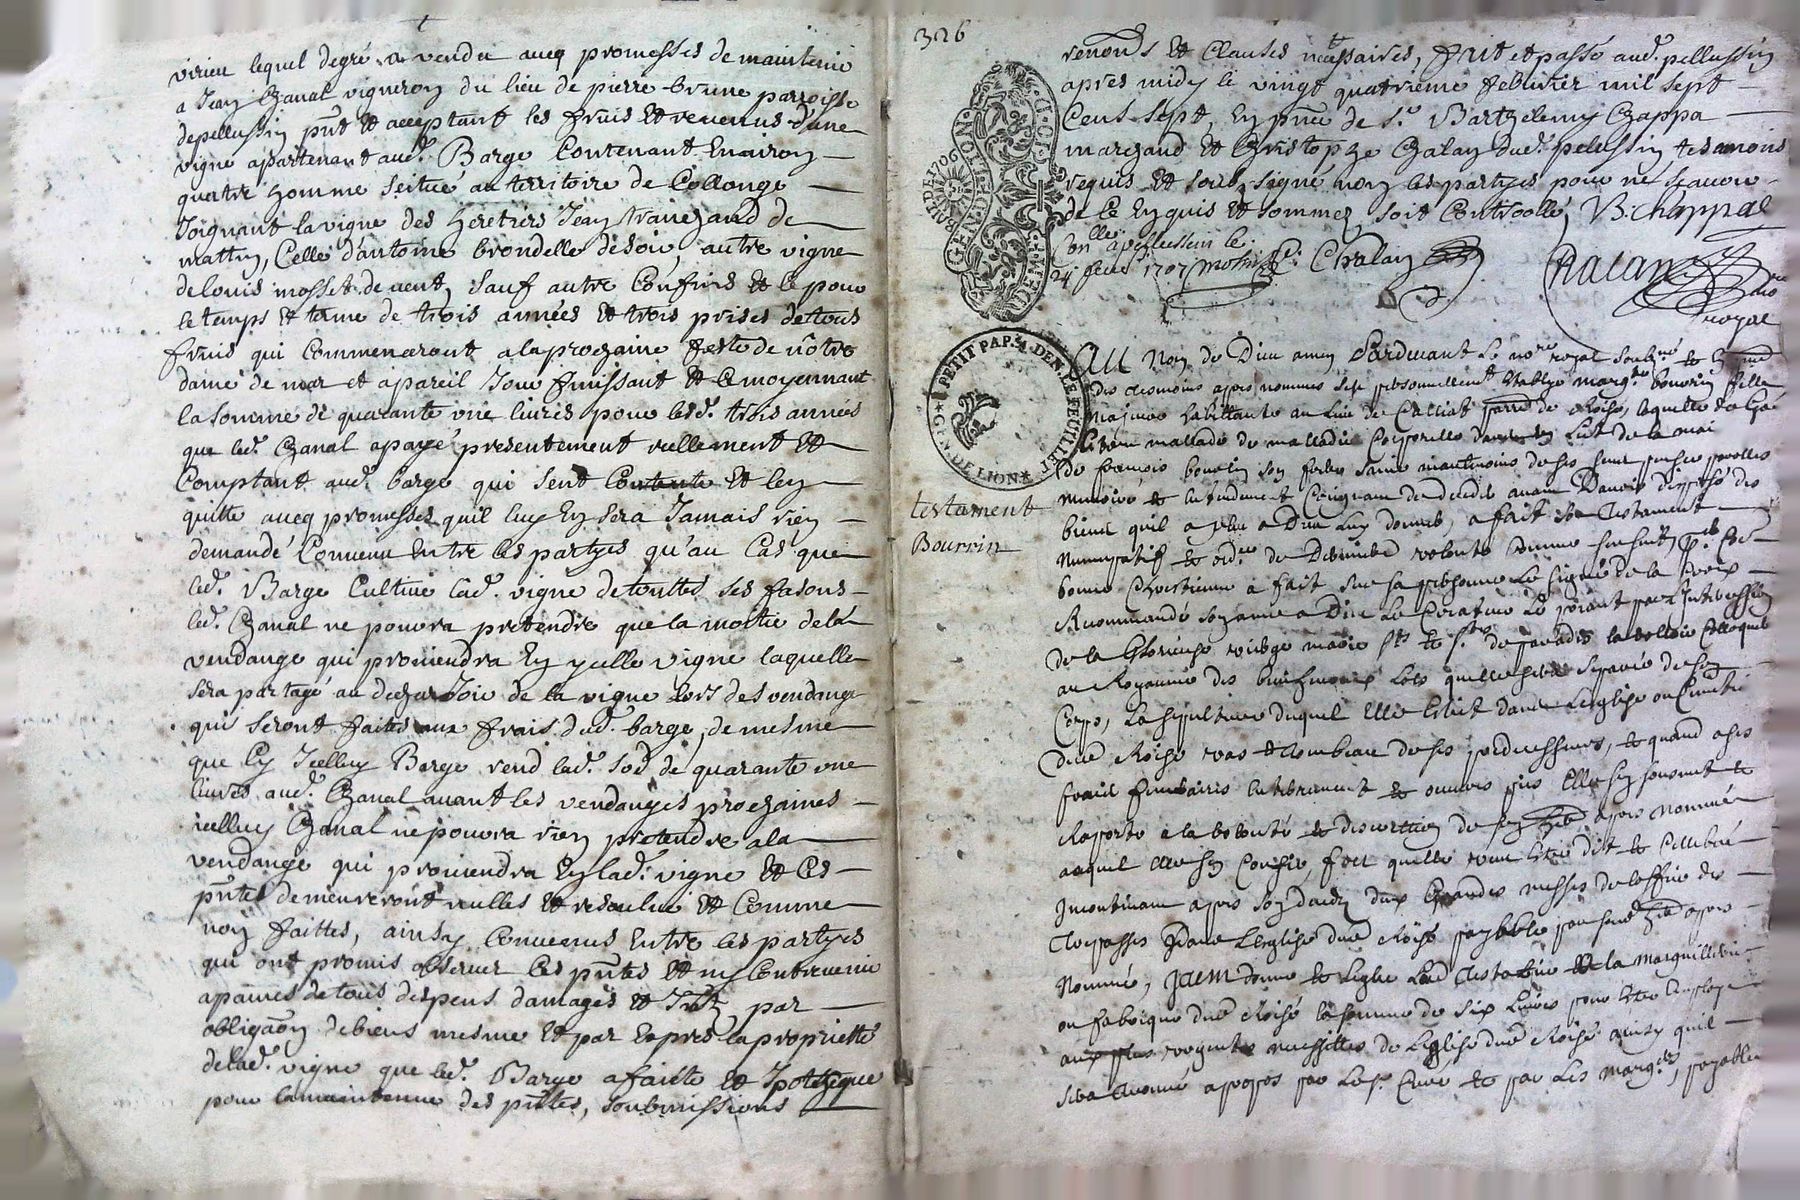 virieu lequel degré a vendu aveq promesses de maintenir
a Jean Chanal vigneron du lieu de pierre brune parroisse
depellussin pnt et acceptant les fruis et revenus d'une
vigne apartenant aud. Barge Contenant Environ
quatre homme scitué au territoire de Collonge
Joignant la vigne des heretiers Jean
mattin, Celle d'antoine brondelle de soir, autre vigne
de louis mosset de vent, sauf autre Confins et ce pour
le temps et terme de trois années et trois prises de tous
fruis qui Commenceront a la prochaine feste de nôtre
dame de mar et apareil Jour finissant et Ce moyennant
la somme de quarante une livres pour lesd. trois années
que led. Chanal a payé presentement reellement et
Comptant aud. barge qui sent Contente et len
quitte aveq promesses quil luy En sera Jamais rien
demandé Convenu Entre les partyes qu'au Cas que
led. Barge Cultive lad. vigne de touttes ses fasons
led. Chanal ne pourra pretendre que la moitie de la
vendange qui proviendra En ycelle vigne laquelle
sera partagé au de la vigne lors des vendange
qui seront faites aux frais dud. barge, de mesme
que sy Icelluy Barge rend lad. so de quarante une
livres aud. Chanal avant les vendanges prochaines
icelluy Chanal ne pourra rien pretendre a la
vendange qui proviendra En lad. vigne et Ces
pntes demeureront nulles et resolue et Comme
non faittes, ainsy Convenus Entre les partyes
qui ont promis observer Ces pntes et ny Contrevenir
a paines de tous despens damages et Intz par
obligaon de biens mesme et par Expres la proprietté
de lad. vigne que led. Barge a faitte et Ipotheque
pour la maintenue des pntes, soubmissions
326
renons et Clauses nessaires, fait et passé aud. pellussin
apres midy le vingt quatrieme feburier mil sept
Cens sept, En pnce de sr. Barthelemy Chappa
marchand et Christophe Chalay dud. pelussin tesmoins
requis et soub signé non les partyes pour ne scavoir
de Ce Enquis et sommez soit Controollé, B. Chappal
Conlle a pellussin le
24 feur 1707 Chalay
royal
GEN. DE LION
PETIT PAP. 4. DEN. LE FEUILLET
G.N. DE LION
testament
Bourrin
Au Nom de Dieu amen Pardevant Le nore royal soubne et En pnce
des tesmoins apres nommes sest personnellemt Establye margte bourin fille
majeure habittante au lieu de parre de Roise, laquelle
malade de malladie Corporelle
de francois bourin son frere saine
memoire et Entendement Craignant de deceder avant Davoir disposé des
biens quil a plu a Dieu luy donner, a fait Son Testament
Nuncupatif et ordre de Derniere volonte Comme sensuit,
bonne Chrestienne a fait sur sa personne Le Signe de la Croix
Recommandé son ame a Dieu Le Createur Le priant par l'Intercession
de la Glorieuse vierge marie sts et stes de paradis la volloir Colloquer
au Royaume des bienheureux Lors quelle sera Separée de son
Corps, La sepulture duquel Elle Eslit dans Leglise ou Cimetie
dud Roise vas et tombeau de ses predecesseurs, et quand a ses
frais funeraires Enterrement et œuvres pies Elle sen
Raporte a la volonté et discrettion de son here apres nommé
auquel elle sen Confie, fors quelle veut Estre dit et Cellebré
Incontinant apres son deces deux Grandes messes de loffice des
Trespasses Dans Leglise dud Roise payable par sond here apres
Nommé, Item donne et legue Lad Testatrice a la marguillerie
ou fabrique dud Roise la somme de six livres pour Estre Employe
aux plus urgentes necessittes de Leglise dud Roise ainsy quil
sera treuvé a propos par Le sr Curé et par Les margrs, payables